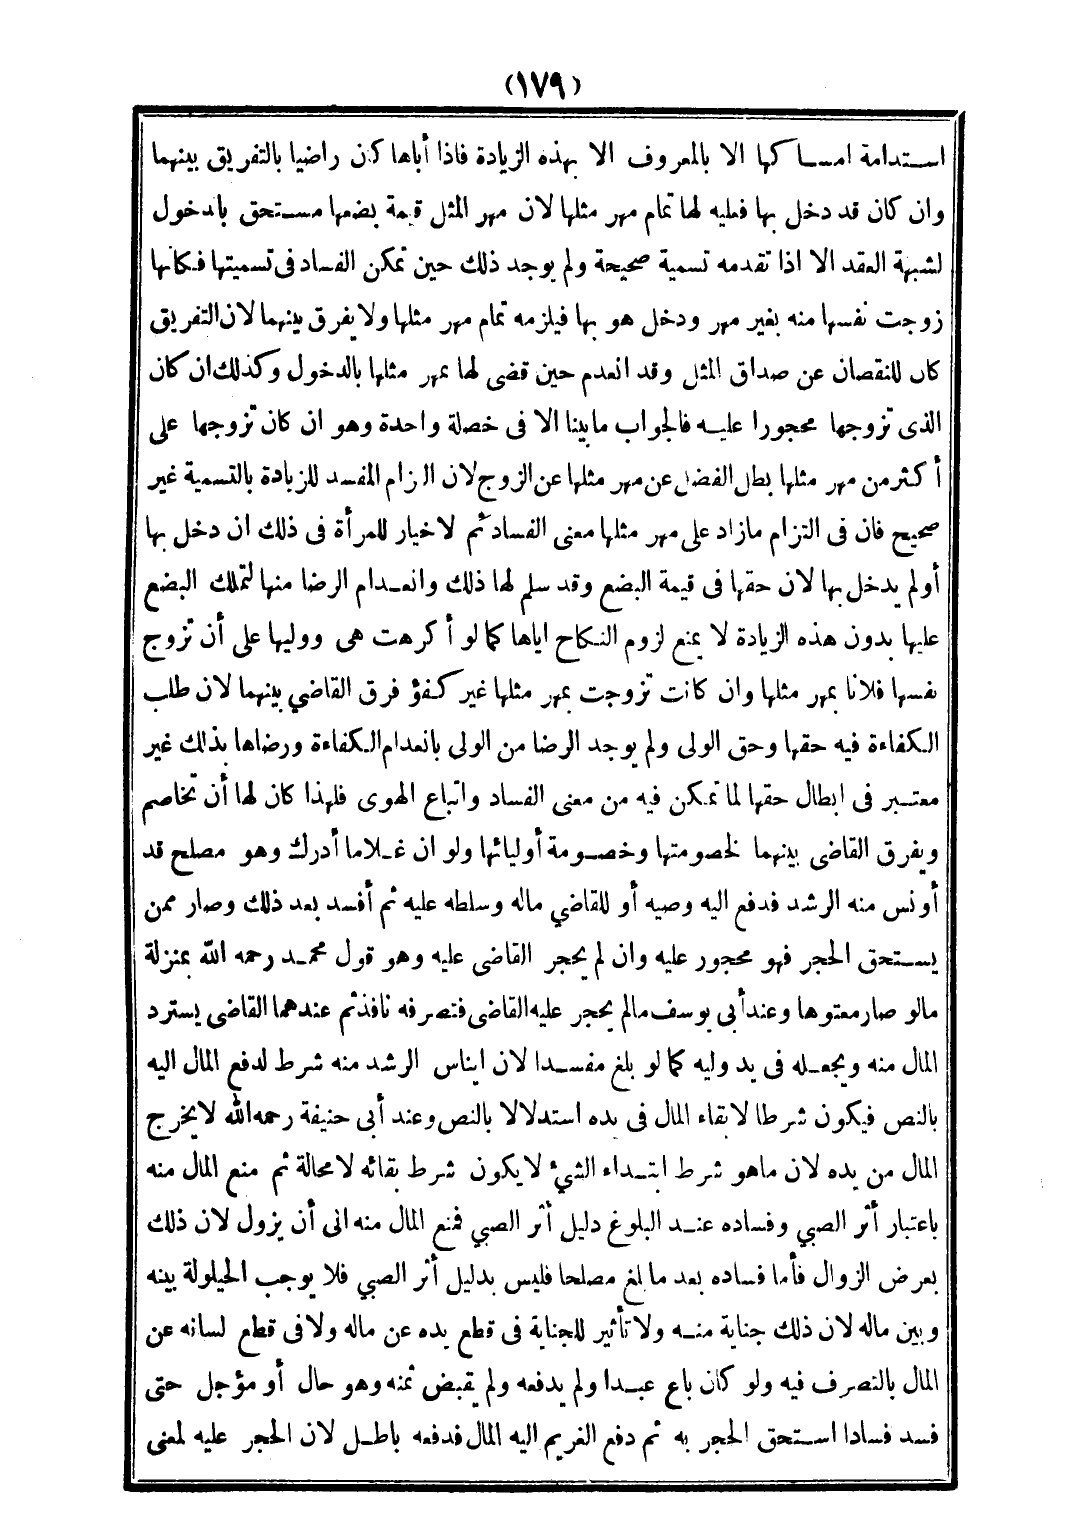 (١٧٩)
استدامة امساكها الا بالمعروف الا بهذه الزيادة فاذا أباها كان راضيا بالتفريق بينهما
وان كان قد دخل بها فعليه لها تمام مهر مثلها لان مهر المثل قيمة بضعها مستحق بالدخول
لشبهة العقد الا اذا تقدمه تسمية صحيحة ولم يوجد ذلك حين تمكن الفساد فى تسميتها فكانها
زوجت نفسها منه بغير مهر ودخل هو بها فيلزمه تمام مهر مثلها ولا يفرق بينهما لان التفريق
كان للنقصان عن صداق المثل وقد انعدم حين قضى لها بمهر مثلها بالدخول وكذلك ان كان
الذى تزوجها محجورا عليه فالجواب ما بينا الا فى خصلة واحدة وهو ان كان تزوجها على
أكثر من مهر مثلها بطل الفضل عن مهر مثلها عن الزوج لان الزام المفسد للزيادة بالتسمية غير
صحيح فان فى التزام مازاد على مهر مثلها معنى الفساد ثم لا خيار للمرأة فى ذلك ان دخل بها
أولم يدخل بها لان حقها فى قيمة البضع وقد سلم لها ذلك وانعدام الرضا منها لتملك البضع
عليها بدون هذه الزيادة لا يمنع لزوم النكاح اياها كما لو أكرهت هى ووليها على أن تزوج
نفسها فلانا بمهر مثلها وان كانت تزوجت بمهر مثلها غير كفؤ فرق القاضي بينهما لان طلب
الكفاءة فيه حقها وحق الولى ولم يوجد الرضا من الولى بانعدام الكفاءة ورضاها بذلك غير
معتبر فى ابطال حقها لما تمكن فيه من معنى الفساد واتباع الهوى فلهذا كان لها أن تخاصم
ويفرق القاضى بينهما لخصومتها وخصومة أوليائها ولو ان غلاما أدرك وهو مصلح قد
أونس منه الرشد فدفع اليه وصيه أو للقاضي ماله وسلطه عليه ثم أفسد بعد ذلك وصار ممن
يستحق الحجر فهو محجور عليه وان لم يحجر القاضى عليه وهو قول محمد رحمه الله بمنزلة
مالو صار معتوها وعند أبى يوسف مالم يحجر عليه القاضى فتصرفه نافذ ثم عندهما القاضى يسترد
المال منه ويجعله فى يد وليه كما لو بلغ مفسدا لان ايناس الرشد منه شرط لدفع المال اليه
بالنص فيكون شرطا لابقاء المال فى يده استدلالا بالنص وعند أبى حنيفة رحمه الله لا يخرج
المال من يده لان ماهو شرط ابتداء الشئ لا يكون شرط بقائه لا محالة ثم منع المال منه
باعتبار أثر الصبي وفساده عند البلوغ دليل أثر الصبي فمنع المال منه الى أن يزول لان ذلك
بعرض الزوال فأما فساده بعد ما بلغ مصلحا فليس بدليل أثر الصبي فلا يوجب الحيلولة بينه
وبين ماله لان ذلك جناية منه ولا تأثير للجناية فى قطع يده عن ماله ولا فى قطع لسانه عن
المال بالتصرف فيه ولو كان باع عبدا ولم يدفعه ولم يقبض ثمنه وهو حال أو مؤجل حتى
فسد فسادا استحق الحجر به ثم دفع الغريم اليه المال فدفعه باطل لان الحجر عليه لمعنى